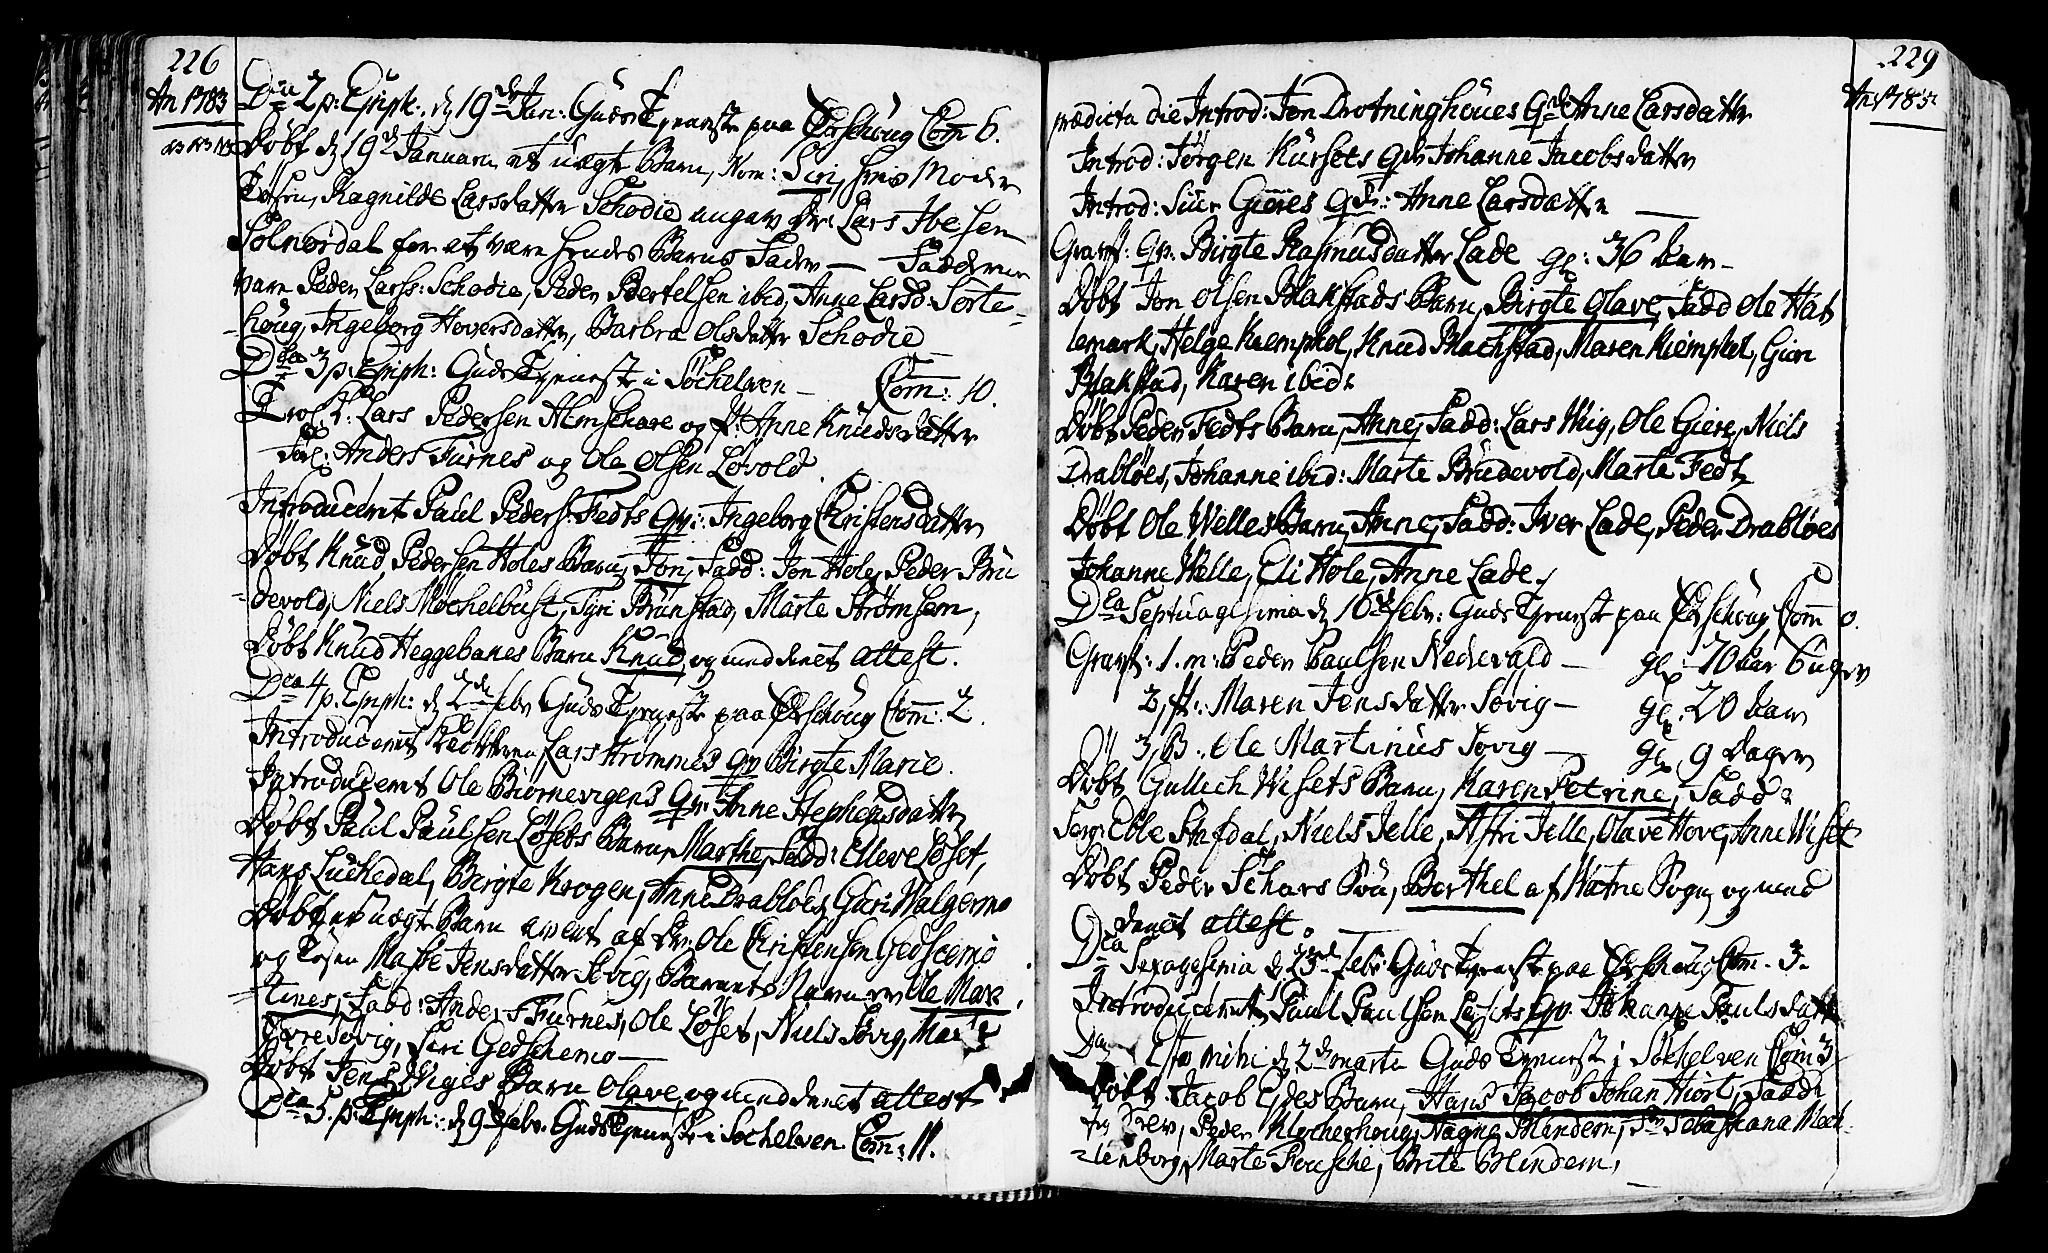 226
An 1783
Dca 2 p: Epiph: d 19de Jan: Guds Tjeneste paa Ørschoug Com 6.
Døbt d 19de Januari et uægte Barn, Nom: Siri, hvis Moder
Tøsen, Ragnilde Larsdatter Schodie angav Dr: Lars Ibesen
Solnørdal for at være hendes Barns Fader — Fadderne
vare Peder Larss: Schodie, Peder Bertelsen ibid, Anne Larsd: Sorte-
-houg, Ingeborg Hoversdatter, Barbra Olsdatter Schodie
Dca 3 p: Epiph: Guds Tjeneste i Søchelven — Com: 10.
Trol: K: Lars Pedersen Almschare og P: Anne Knudsdatter
Forl: Anders Furnes og Ole Olsen Løvold.
Introduceret Paul Peders: Fedts Qv: Ingeborg Christensdatter
Døbt Knud Pedersen Holes Barn, Jon, Fadd: Jon Hole, Peder Bru
-devold, Niels Mochelbust, Tyri Brunstad, Marte Strømhem,
Døbt Knud Heggebanes Barn Knud, og meddeelt attest.
Dca 4 p. Epiph: d 2de Febr Guds Tjeneste paa Ørschoug Com: 2.
Introduceret Lars Strømmes Qv Birgte Marie.
Introduceret Ole Biørnevigens Qv: Anne Stephensdatter
Døbt Paul Paulsen Løsets Barn, Marthe, Fadd: Elleve Løset,
Hans Luchedal, Birgte Krogen, Anne Drabløes, Guri Walgermo
Døbt et uægte Barn avlet af Dr: Ole Christensen Gedschemo
og Tøsen Massbe Jensdatter Sovig, Barnets Navn er Ole Mar
-tines, Fadd: Anders Furnes, Ole Løset, Niels Sovig, Marte
Sovig, Siri Gedschemo —
Døbt Jens Barn Olave, og meddeelt attest
Dca 5. p: Epiph: d 9de Febr. Guds Tjeneste i Søchelven Com: 11.
229
An 1783
prædicta die Introd: Jon Drotninghoues Qv Anne Larsdatter
Introd: Jørgen Kursets Qv Johanne Jacobsdatter
Introd: Siur Gieres Qv: Anne Larsdatter —
Græft: Qv: Birgte Rasmusdatter Lade gl: 36 Aar —
Døbt Jon Olsen Blakstads Barn, Birgte Olave, Fadd Ole Hat
lemark, Helge Kiemphol, Knud Blachstad, Maren Kiemphol, Guri
Blakstad, Karen ibid:
Døbt Peder Fedts Barn, Anne, Fadd: Lars Wiig, Ole Giere, Niels
Drabløes, Johanne ibid: Marte Brudevold, Marte Fedt
Døbt Ole Welles Barn, Anne, Fadd: Iver Lade, Peder Drabløes
Johanne Welle, Eli Hole, Anne Lade.
Dca Septuagesima d 16de Febr: Guds Tjeneste paa Ørschoug Com 0.
Græft: 1. m: Peder Paulsen Nedrevald — gl: 70 Aar 6 uger
2, F: Maren Jensdatter Sovig — gl: 20 Aar
3, B: Ole Martinus Sovig — gl: 9 Dager
Døbt Gullech Wisets Barn, Karen Petrine, Fadd:
Ebbe Stufdal, Niels Jelle, Astri Jelle, Olave Hove, Anne Wiset
Døbt Peder Schars Barn, Berthel af Watne Sogn, og med
deelt attest.
Dca Sexagesima d 23de Febr: Guds Tjeneste paa Ørschoug Com. 3.
Introduceret Paul Paulsen Løsets Qv: Johanne Paulsdatt
Dca Esto mihi d 2de Marti Guds Tjeneste i Søchelven Com 3.
Døbt Jacob Eides Barn, Hans Jacob Johan Hiort, Fadd:
Peder Klocherhoug, Magne Blindem, Sebastiana Mech-
-lenborg, Marte Fousche, Brite Blindem,